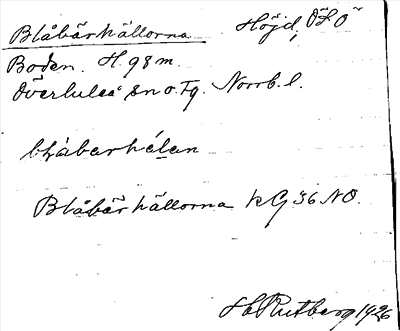 Blåbärhällorna Höjd, Ö L Ö
Boden. H. 98 m.
Överluleå sn o. Tg. Norrb. l.
blåbarhélan
Blåbärhällorna kG 36 NO.
Rutberg 1926